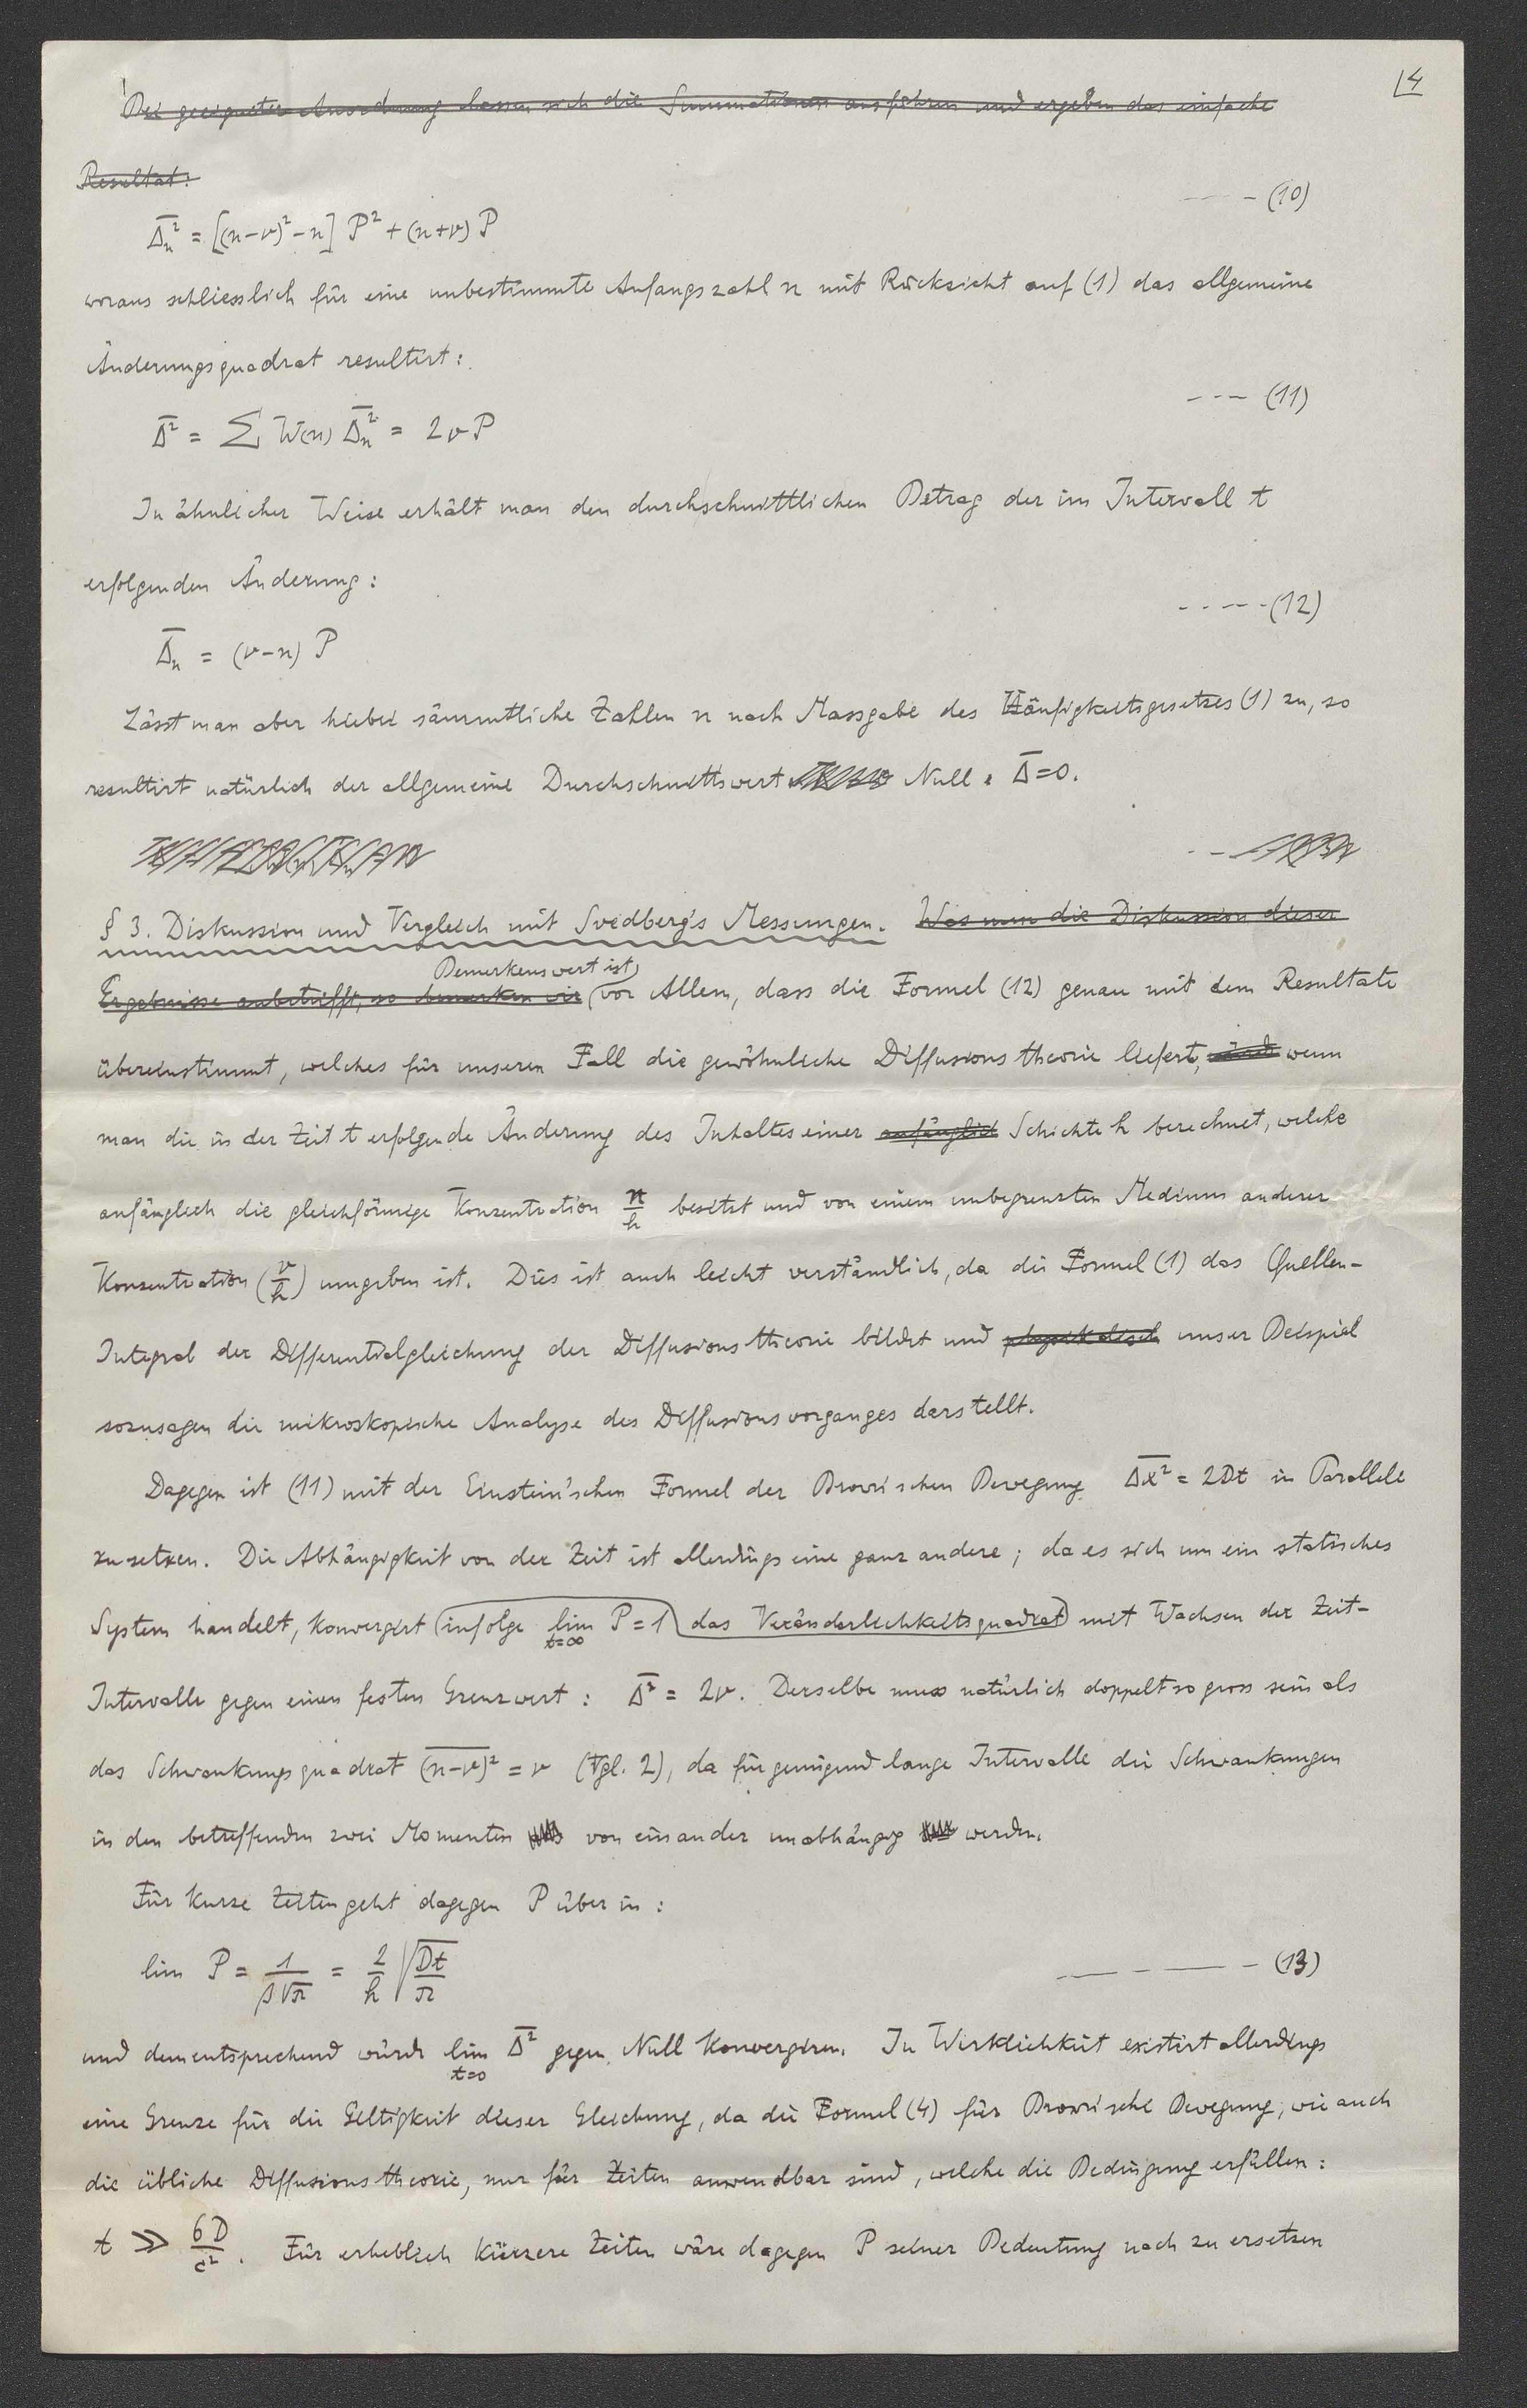 4
Bei geeigneter Anordnung lassen sich die Summationen ausführen und ergeben das einfache
Resultat:
--- (10)
Δ̅ₙ² = [(n-ν)² - n] P² + (n+ν) P
woraus schliesslich für eine unbestimmte Anfangszahl n mit Rücksicht auf (1) das allgemeine
Änderungsquadrat resultirt:
--- (11)
Δ̅² = Σ W(n) Δ̅ₙ² = 2νP
In ähnlicher Weise erhält man den durchschnittlichen Betrag der im Intervall t
erfolgenden Änderung:
----- (12)
Δ̅ₙ = (ν-n) P
Lässt man aber hiebei sämmtliche Zahlen n nach Massgabe des Häufigkeitsgesetzes (1) zu, so
resultirt natürlich der allgemeine Durchschnittswert Null: Δ̅=0.
§ 3. Diskussion und Vergleich mit Svedberg's Messungen. Was nun die Diskussion dieser
Bemerkenswert ist
Ergebnisse anbetrifft, so bemerken wir vor Allem, dass die Formel (12) genau mit dem Resultate
übereinstimmt, welches für unseren Fall die gewöhnliche Diffusionstheorie liefert, wenn
man die in der Zeit t erfolgende Änderung des Inhaltes einer anfänglich Schichte h berechnet, welche
anfänglich die gleichförmige Konzentration n/h besitzt und von einem unbegrenzten Medium anderer
Konzentration (ν/h) umgeben ist. Dies ist auch leicht verständlich, da die Formel (1) das Quellen-
Integral der Differentialgleichung der Diffusionstheorie bildet und physikalisch unser Beispiel
sozusagen die mikroskopische Analyse des Diffusionsvorganges darstellt.
Dagegen ist (11) mit der Einstein'schen Formel der Brown'schen Bewegung Δ̅x̅² = 2Dt in Parallele
zu setzen. Die Abhängigkeit von der Zeit ist allerdings eine ganz andere; da es sich um ein statisches
System handelt, konvergirt infolge lim P=1 das Veränderlichkeitsquadrat mit Wachsen der Zeit-
t=∞
Intervalle gegen einen festen Grenzwert: Δ̅² = 2ν. Derselbe muss natürlich doppelt so gross sein als
das Schwankungsquadrat (n-ν)² = ν (Vgl. 2), da für genügend lange Intervalle die Schwankungen
in den betreffenden zwei Momenten von einander unabhängig werden.
Für kurze Zeiten geht dagegen P über in:
lim P = 1/(β√π) = 2/h √(Dt/π) --- (13)
und dementsprechend würde lim Δ̅² gegen Null konvergiren. In Wirklichkeit existirt allerdings
t=0
eine Grenze für die Giltigkeit dieser Gleichung, da die Formel (4) für Brown'sche Bewegung, wie auch
die übliche Diffusionstheorie, nur für Zeiten anwendbar sind, welche die Bedingung erfüllen:
t ≫ 6D/c². Für erheblich kürzere Zeiten wäre dagegen P seiner Bedeutung nach zu ersetzen